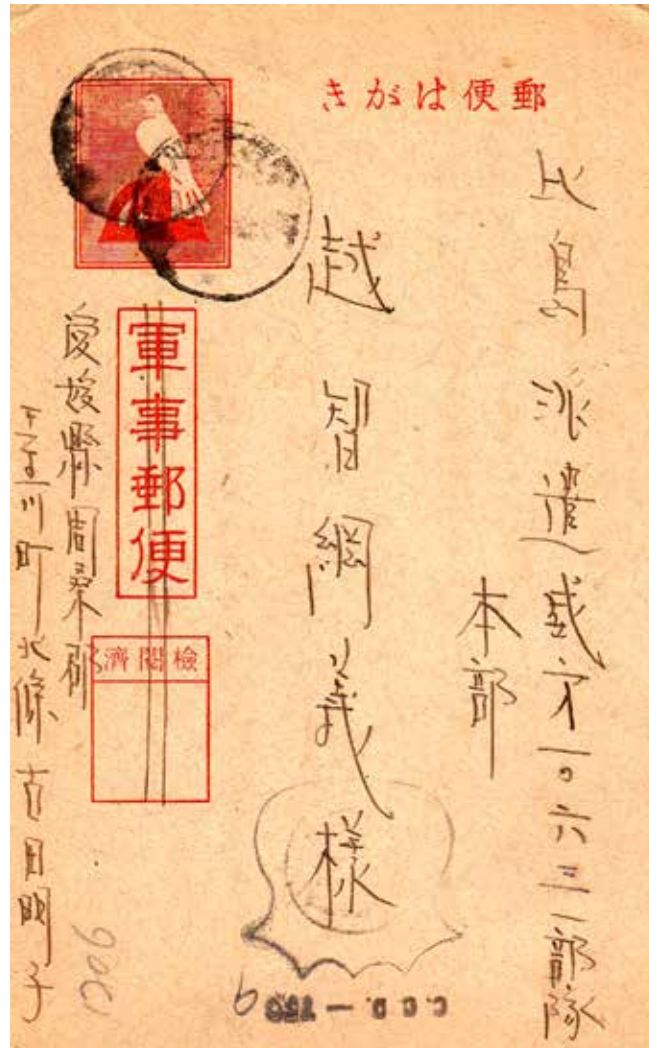 郵便はがき
比島派遣威才一〇六三一部隊
本部
越智綱義様
軍事郵便
檢閲濟
愛媛縣周桑郡
壬生川町北條 明子
C.C.D.